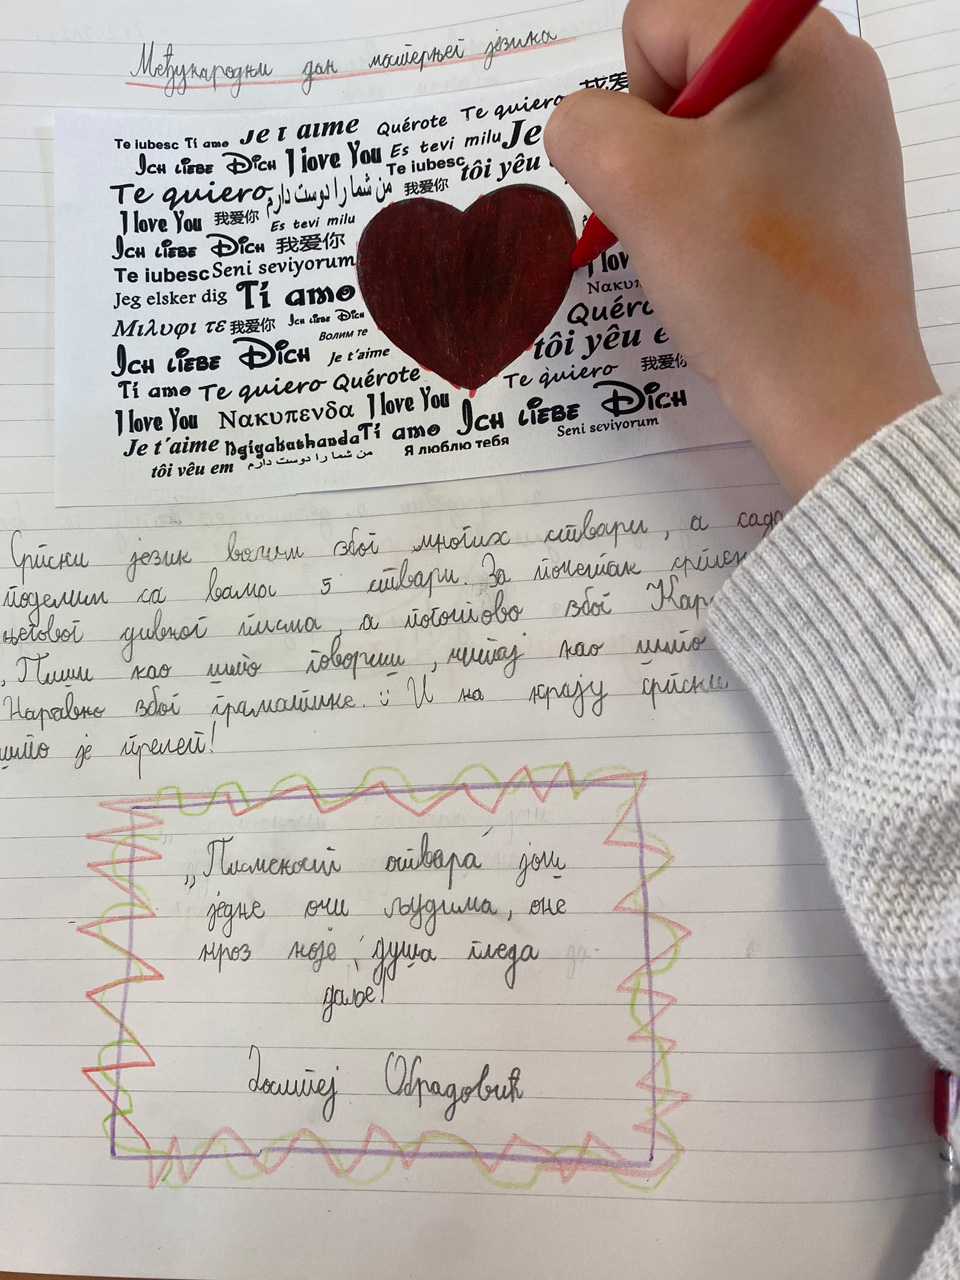 Међународни дан матерњег језика
Te iubesc Ti amo Je t aime Quérote Te quiero 我爱
Ich liebe Dich I love You Es tevi milu Je
Te quiero من شما را دوست دارم 我爱你 Te iubesc tôi yêu
I love You 我爱你 Es tevi milu
Ich liebe Dich 我爱你
Te iubesc Seni seviyorum I lov
Jeg elsker dig Ti amo Nακυπ
Μιλυφι τε 我爱你 Ich liebe Dich Quéro
Волим те tôi yêu e
Ich liebe Dich Je t'aime 我爱你
Ti amo Te quiero Quérote Te quiero
I love You Νακυπενδα I love You Ich liebe Dich
Je t'aime Ngigakuthanda Ti amo Я люблю тебя Seni seviyorum
tôi yêu em من شما را دوست دارم
Српски језик волим због многих ствари, а сада
поделим са вама 5 ствари. За почетак
његовог дивног писма, а поготово због Кар
„Пиши као што говориш, читај као што
Наравно због граматике. И на крају српски
што је прелеп!
„Писменост отвара још
једне очи људима, оне
кроз које душа гледа
даље!
Доситеј Обрадовић